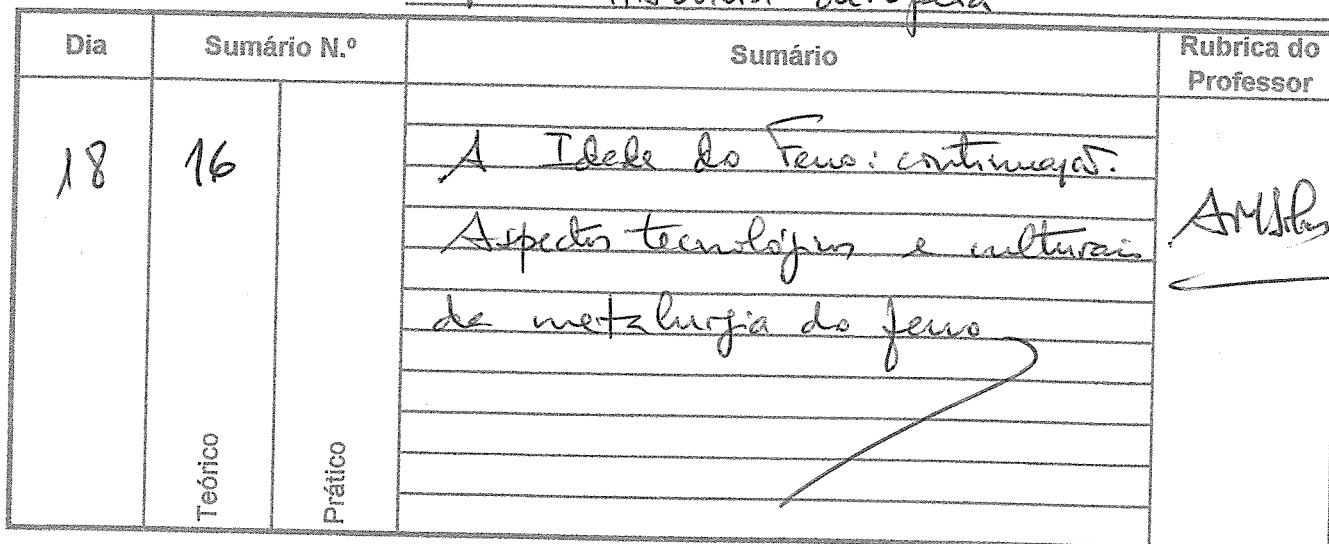 Dia
Sumário N.º
Sumário
Rubrica do
Professor
18
16
A Idade do Ferro: continuação.
Aspectos tecnológicos e culturais
da metalurgia do ferro
Teórico
Prático